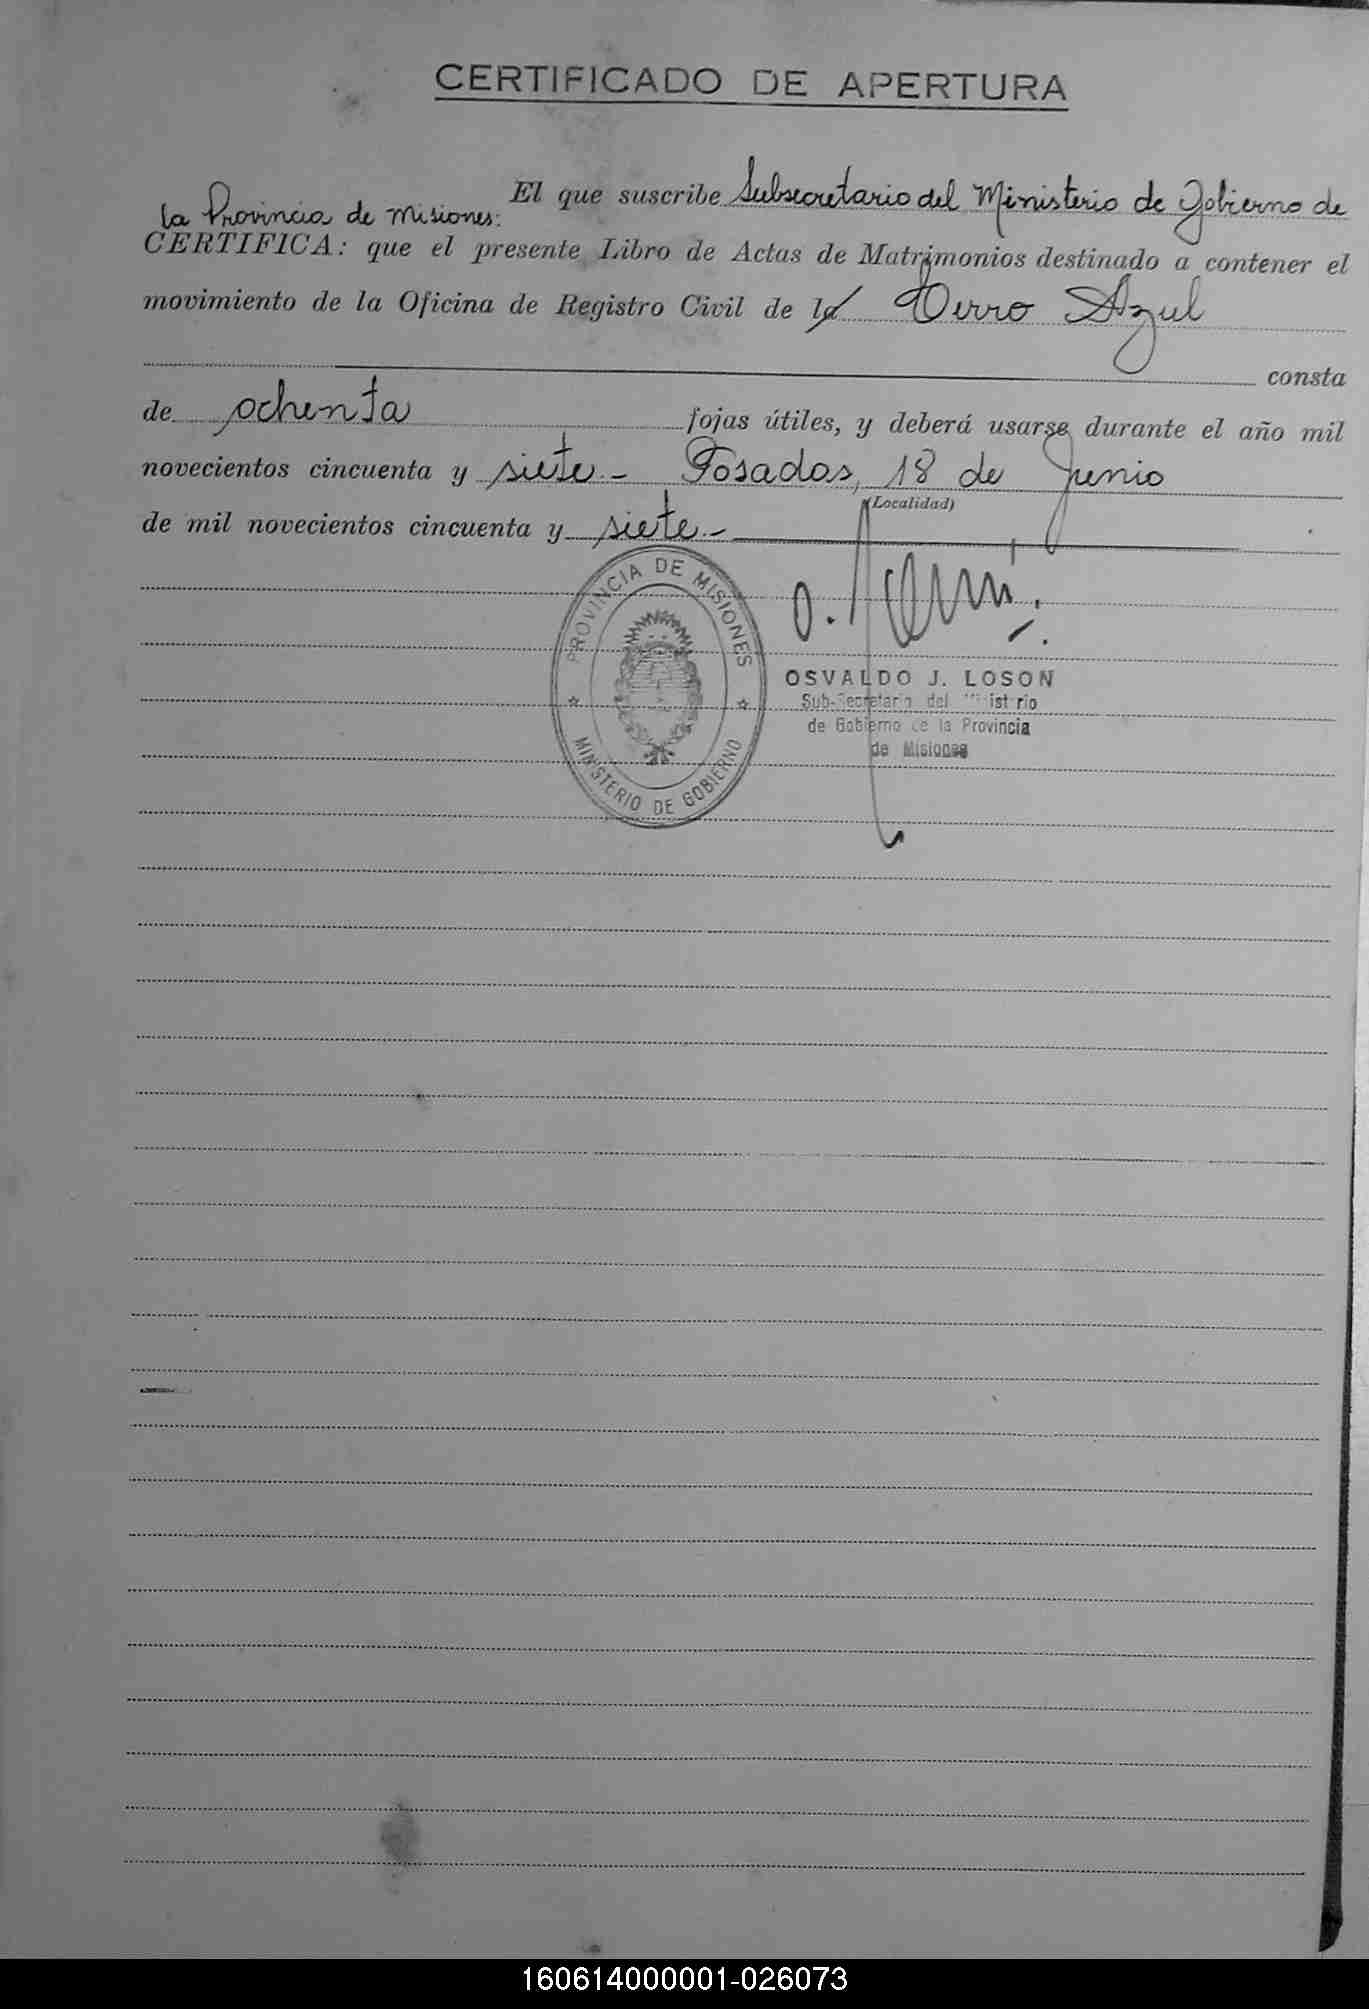 CERTIFICADO DE APERTURA
El que suscribe Subsecretario del Ministerio de Gobierno de
la Provincia de Misiones:
CERTIFICA: que el presente Libro de Actas de Matrimonios destinado a contener el
movimiento de la Oficina de Registro Civil de la Cerro Azul
consta
de ochenta fojas útiles, y deberá usarse durante el año mil
novecientos cincuenta y siete.- Posadas, 18 de Junio
(Localidad)
de mil novecientos cincuenta y siete.-
PROVINCIA DE MISIONES
MINISTERIO DE GOBIERNO
OSVALDO J. LOSON
Sub-Secretario del Ministerio
de Gobierno de la Provincia
de Misiones
160614000001-026073